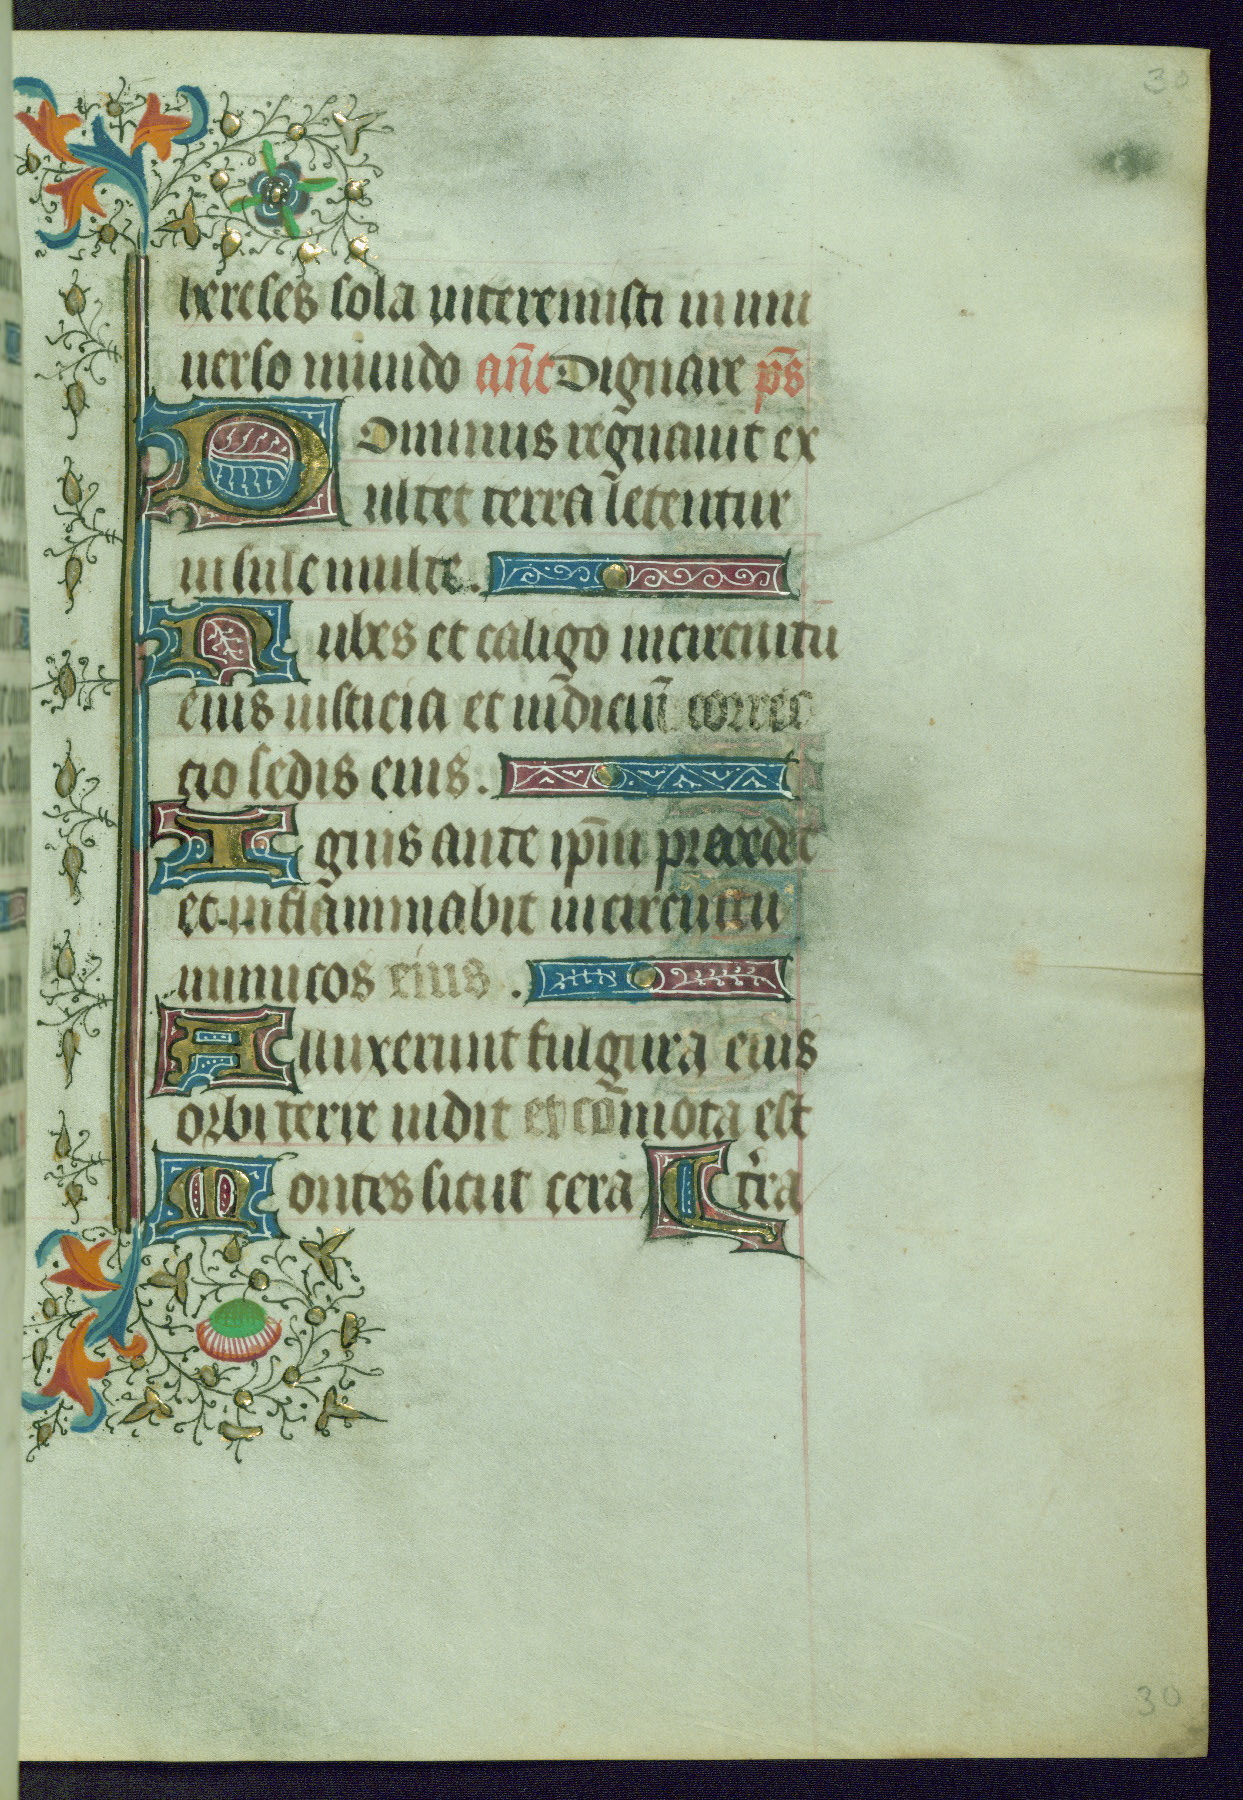 30
hereses sola interemisti in uni
uerso mundo añt Dignare p̄s
Dominus regnauit ex
ultet terra letentur
insule multe.
Nubes et caligo in circuitu
eius iusticia et iudiciū correc
tio sedis eius.
Ignis ante ip̄m praecedet
et inflammabit in circuitu
inimicos eius.
Alluxerunt fulgura eius
orbi terre uidit et cōmota est
Montes sicut cera
30